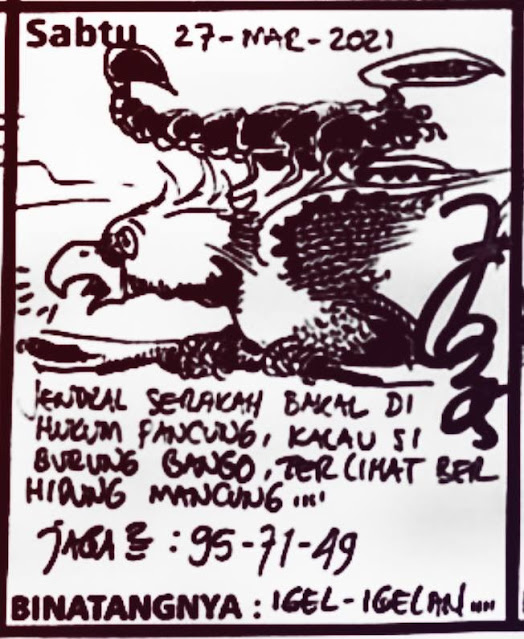 Sabtu 27-MAR-2021
JENDRAL SERAKAH BAKAL DI
HUKUM PANCUNG, KALAU SI
BURUNG BANGO, TERLIHAT BER
HIDUNG MANCUNG....
JAGA2 : 95-71-49
BINATANGNYA : IGEL-IGELAN....